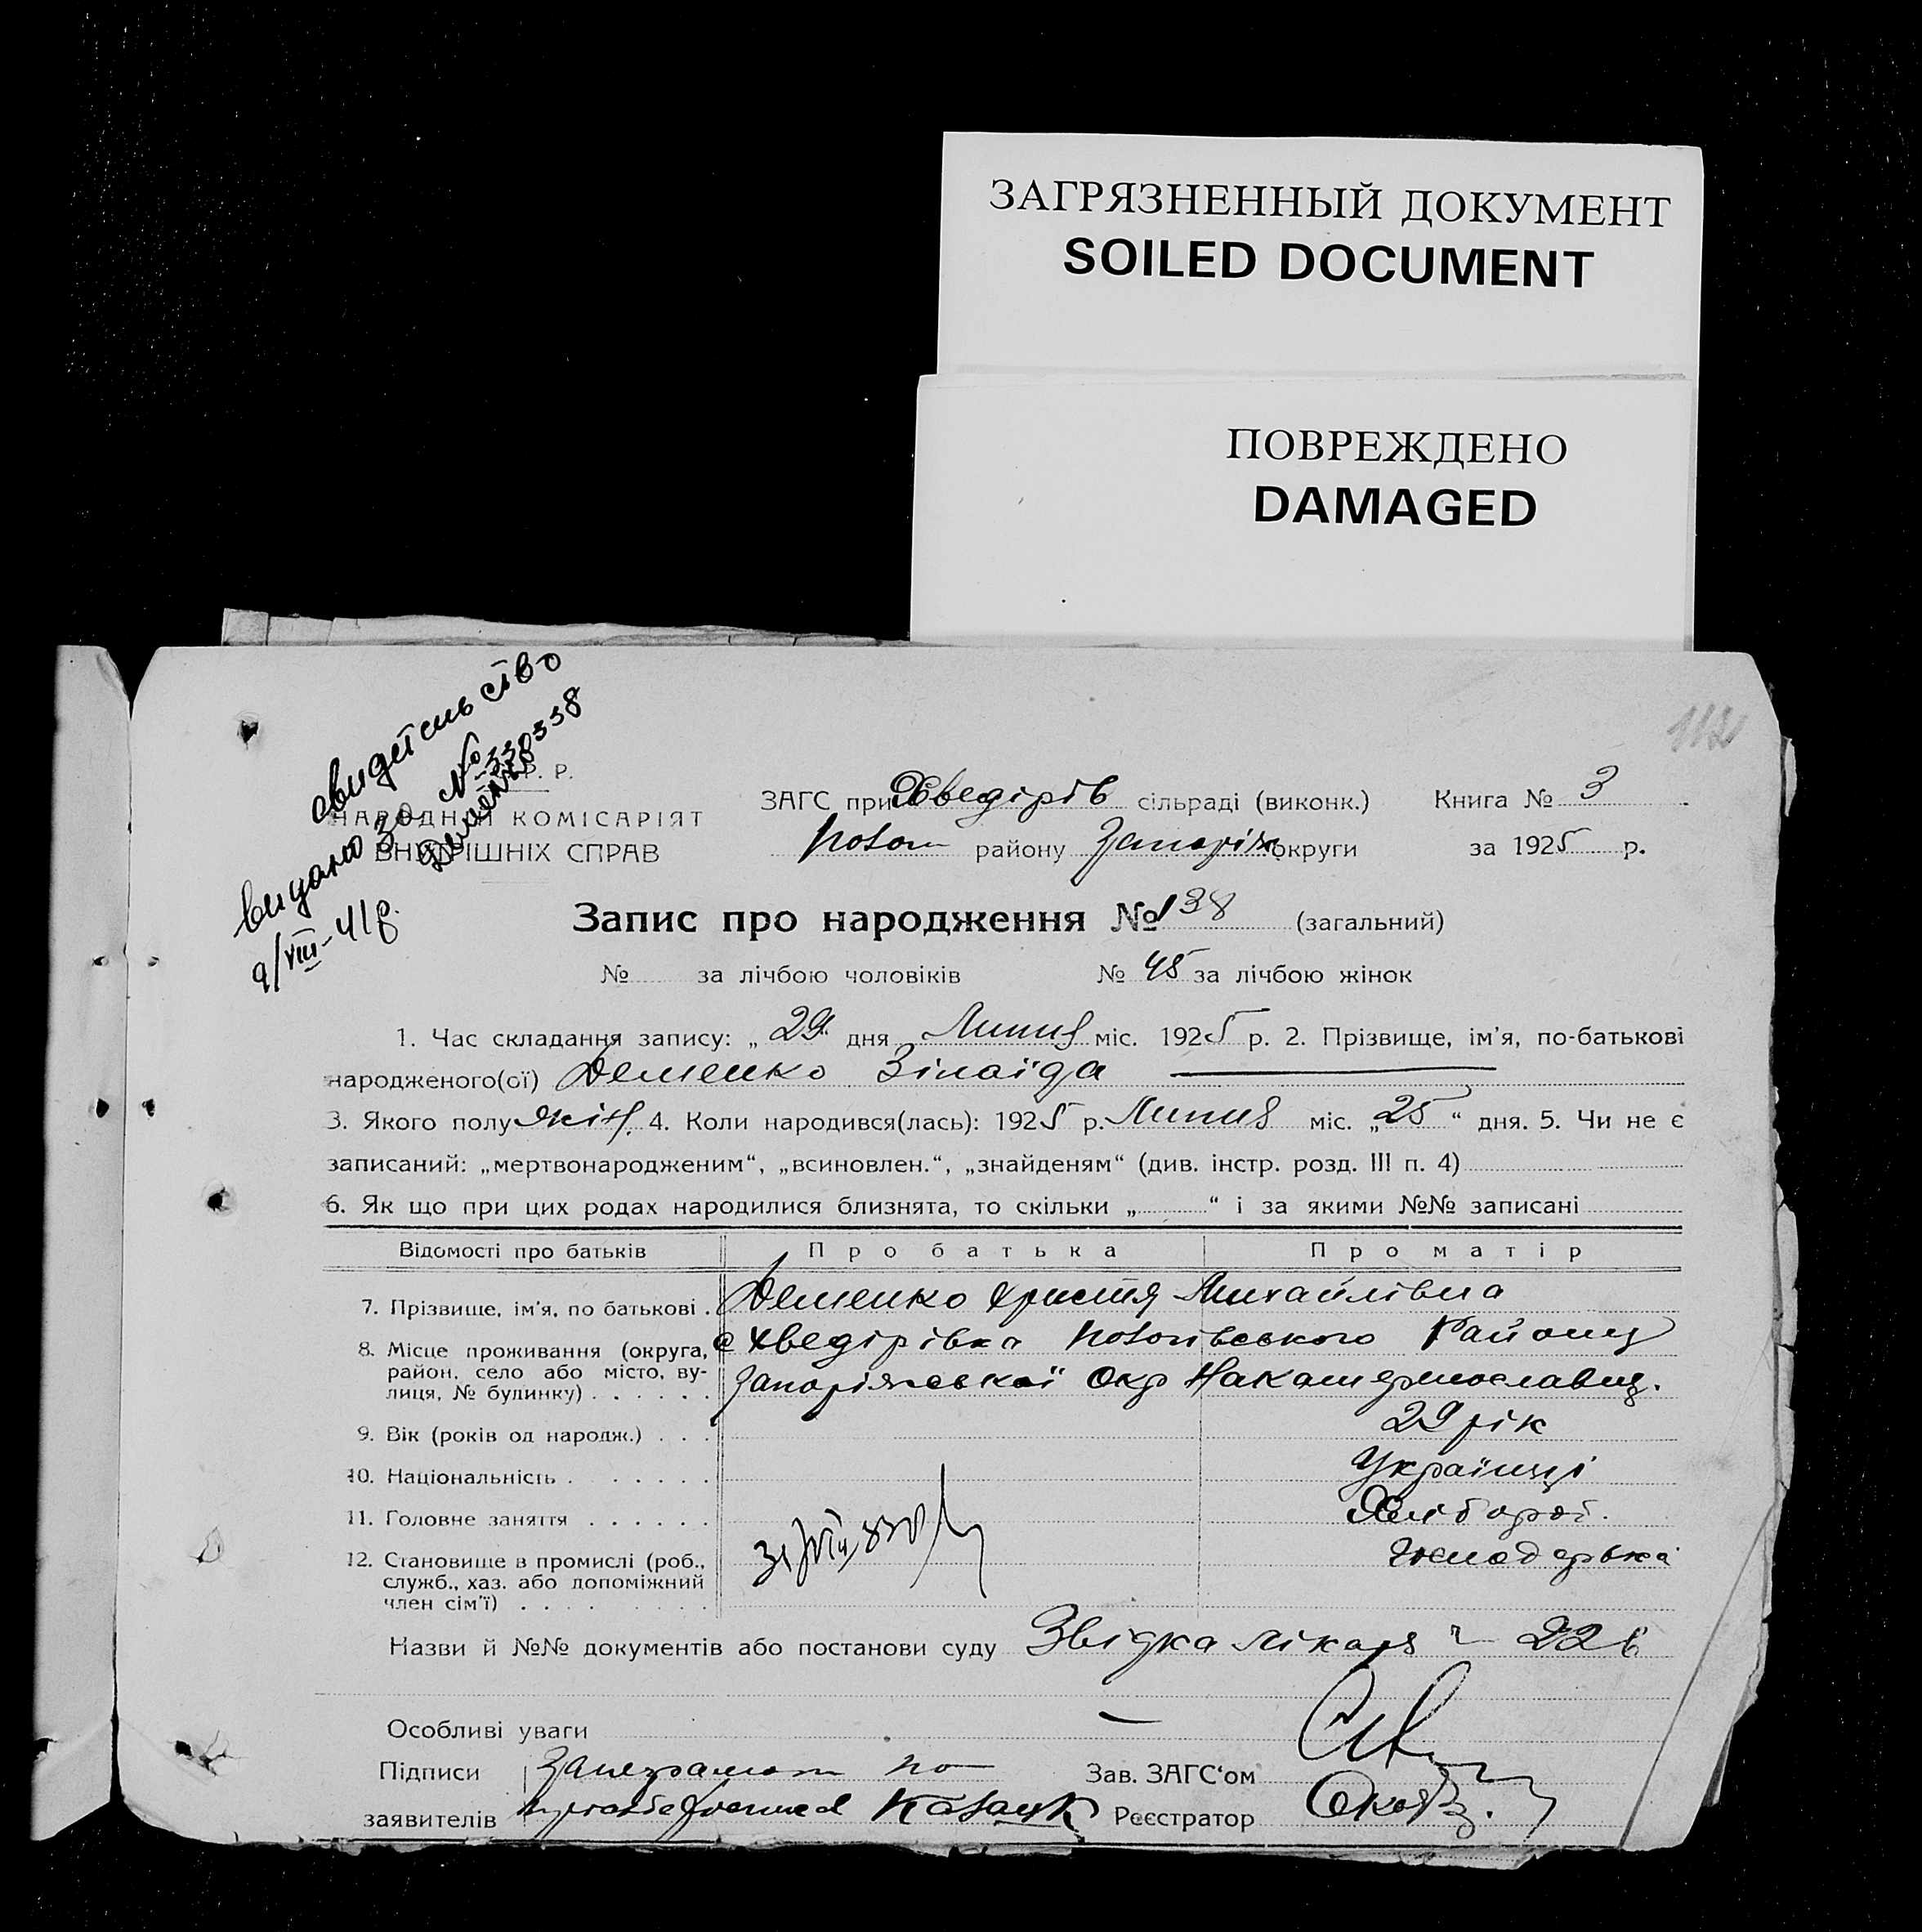 ЗАГРЯЗНЕННЫЙ ДОКУМЕНТ
SOILED DOCUMENT
ПОВРЕЖДЕНО
DAMAGED
свидетельство
видано за № 330338
9/VIII-41р.
112
Р. Р.
НАРОДНІЙ КОМІСАРІЯТ
ВНУТРІШНІХ СПРАВ
ЗАГС при Хведірів сільраді (виконк.) Книга № 3
району Запоріж округи за 1925 р.
Запис про народження № 138 (загальний)
№ за лічбою чоловіків № 45 за лічбою жінок
1. Час складання запису: „29“ дня Липня міс. 1925 р. 2. Прізвище, ім'я, по-батькові
народженого(ої) Деменко Зінаїда
3. Якого полу жін. 4. Коли народився(лась): 1925 р. Липня міс. „25“ дня. 5. Чи не є
записаний: „мертвонародженим“, „всиновлен.“, „знайденям“ (див. інстр. розд. III п. 4)
6. Як що при цих родах народилися близнята, то скільки „ “ і за якими №№ записані
Відомості про батьків Про батька Про матір
7. Прізвище, ім'я, по батькові . Деменко Христя Михайлівна
8. Місце проживання (округа, с Хведірівка Району
район, село або місто, ву-
лиця, № будинку) . . . . . . Запоріжської Окр
9. Вік (років од народж.) . . . 29 рік
10. Національність . . . . . . . Українці
11. Головне заняття . . . . . . Хлібороб.
12. Становище в промислі (роб., Господарька
служб., хаз. або допоміжний
член сім'ї) . . . . . . . .
Назви й №№ документів або постанови суду Звідка лікаря
Особливі уваги —
Підписи Зав. ЗАГС'ом
заявителів Козачук Реєстратор